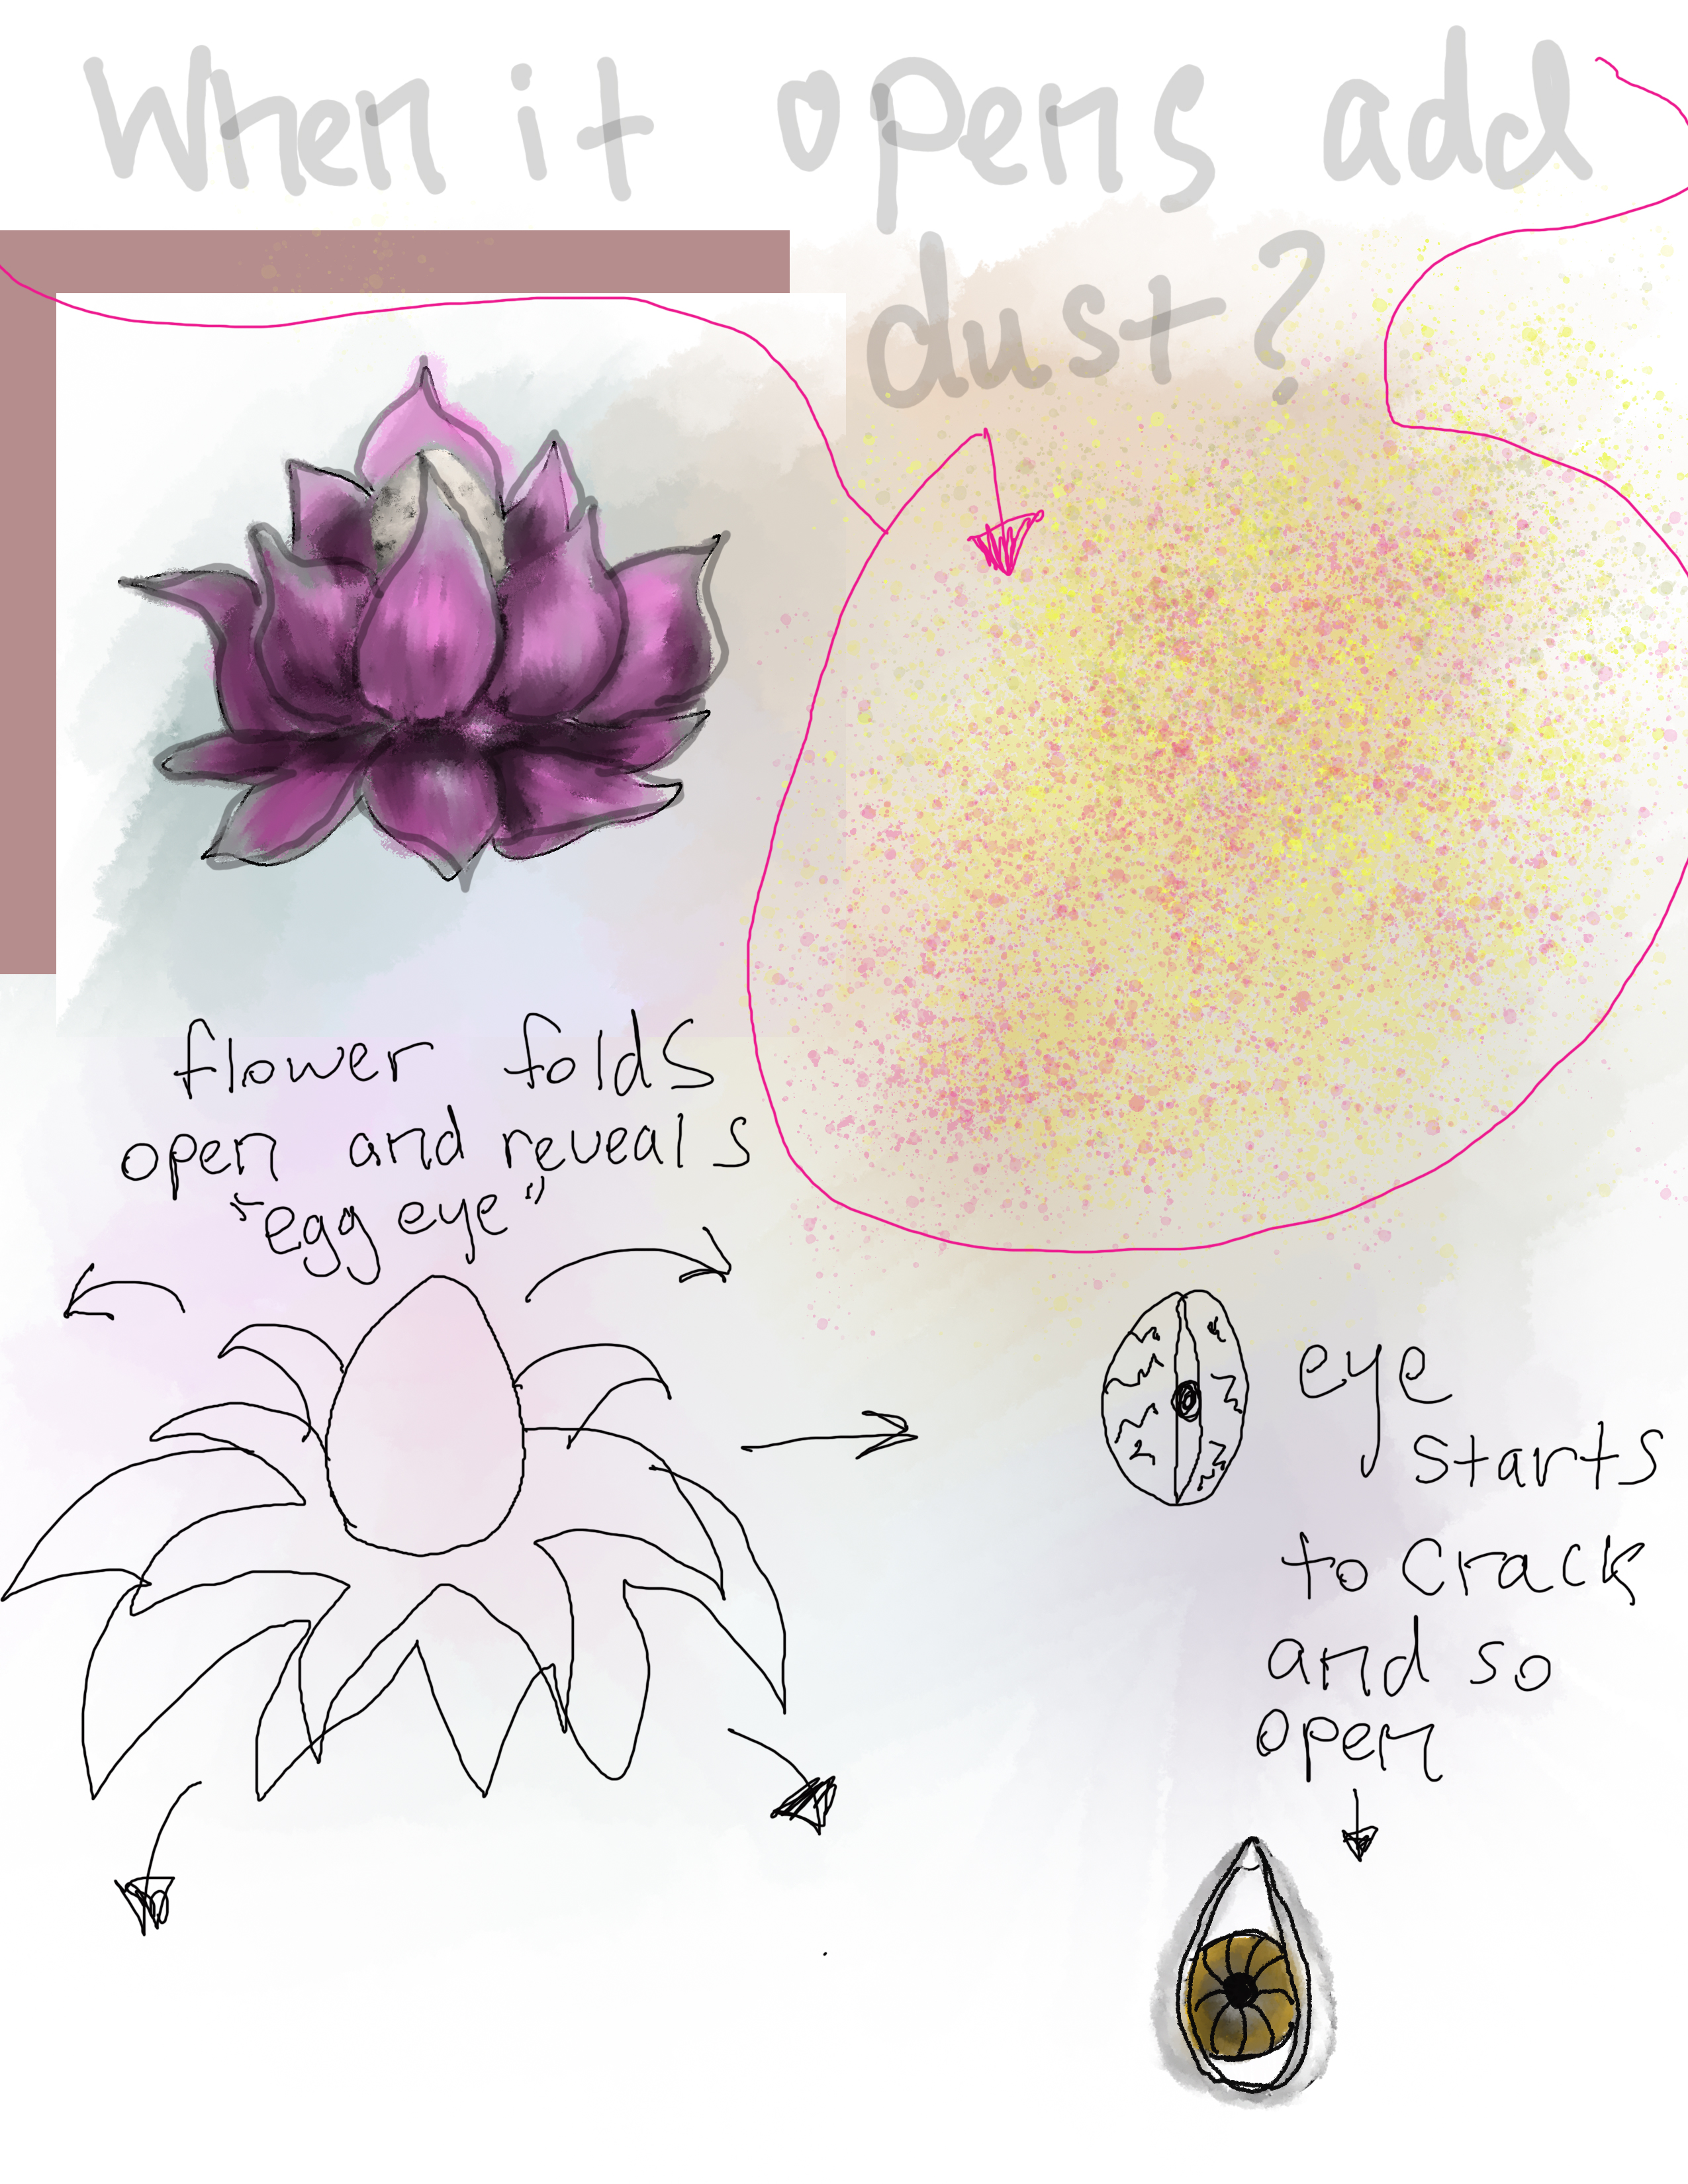 When it opens add
dust?
flower folds
open and reveals
"egg eye"
eye
starts
to crack
and so
open